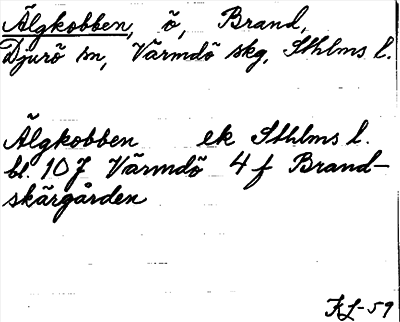 Älgkobben, ö, Brand,
Djurö sn, Värmdö skg, Sthlms l.
Älgkobben ek Sthlms l.
bl. 107 Värmdö 4 f Brand-
skärgården
KL-59